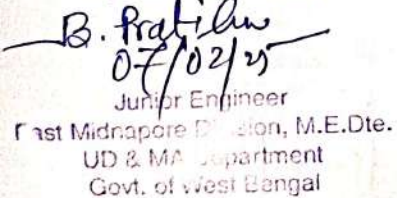 B. Pratihar
07/02/25
Junior Engineer
East Midnapore Division, M.E.Dte.
UD & MA Department
Govt. of West Bengal